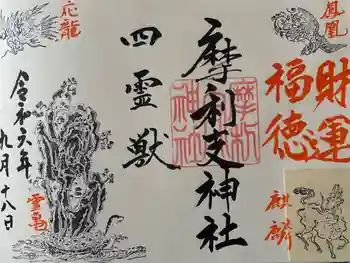 鳳凰
財運
福徳
麒麟
摩利支神社
四霊獣
応龍
令和六年
九月十八日
霊亀